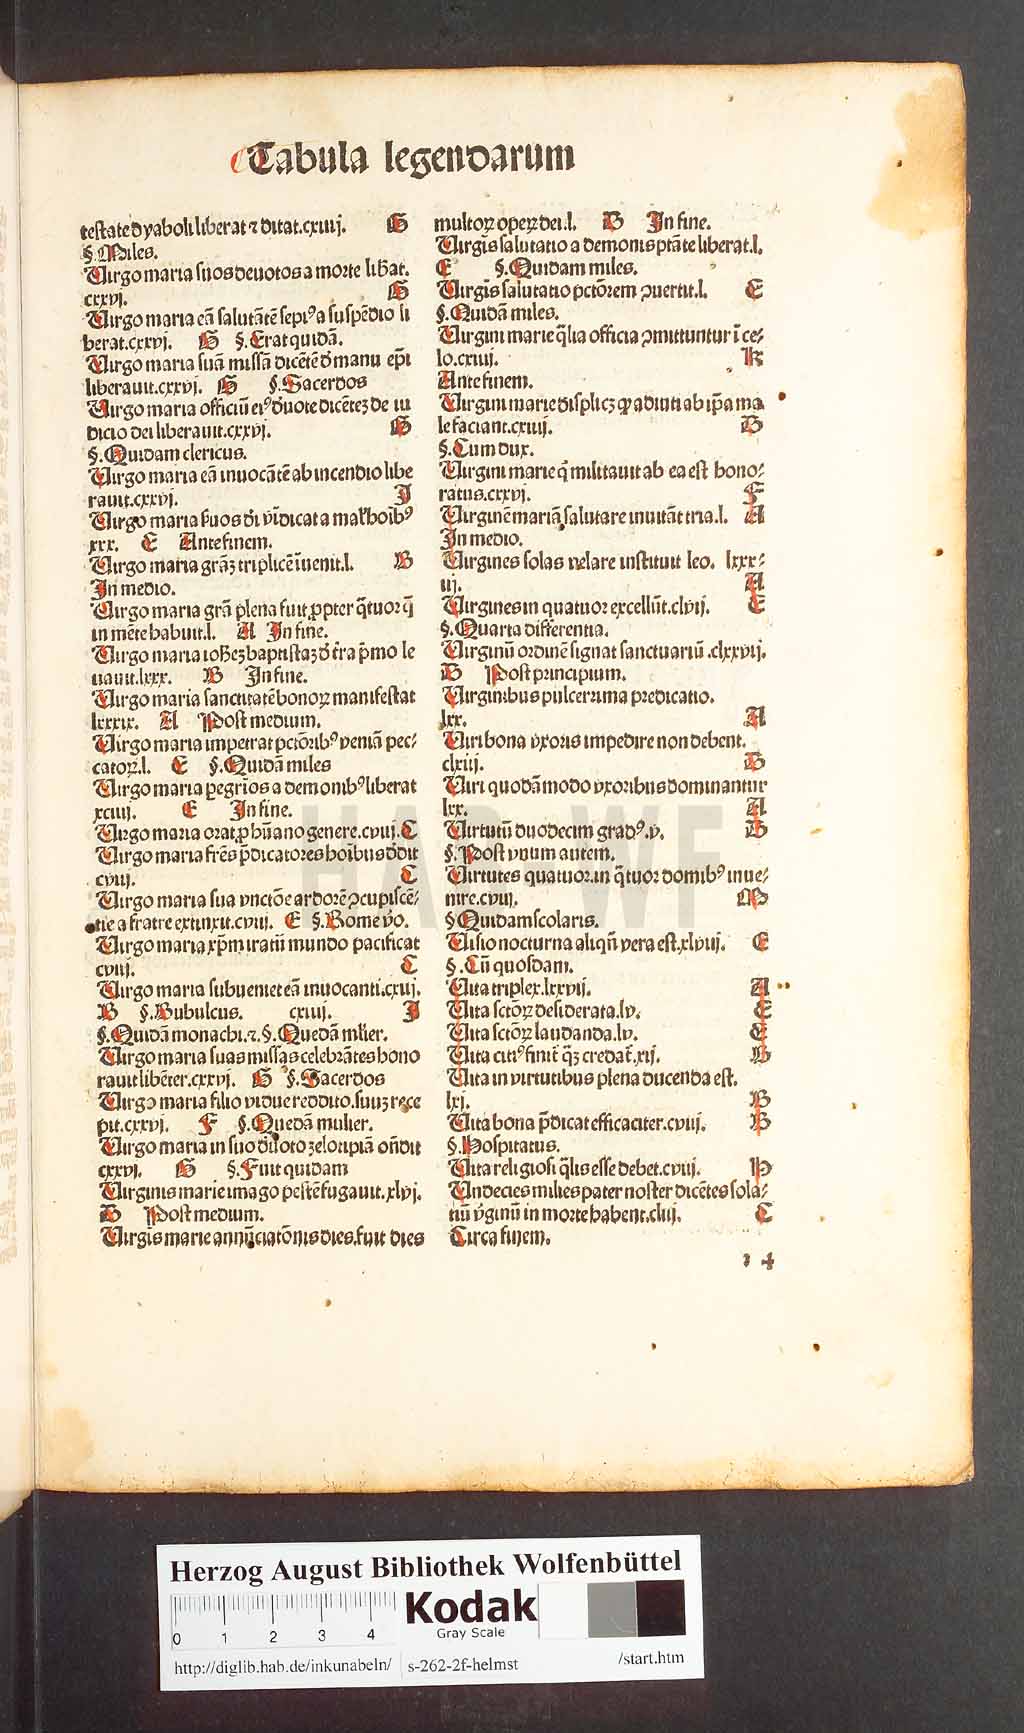 Tabula legendarum
testate dyaboli liberat ⁊ ditat.cxiiij. G
§.Miles.
Uirgo maria suos deuotos a morte liƀat.
cxxvj. G
Uirgo maria eā salutātē sepiꝰ a suspēdio li
berat.cxxvj. G §.Erat quidā.
Uirgo maria suā missā dicētē d̄ manu ep̄i
liberauit.cxxvj. G §.Sacerdos
Uirgo maria officiū eiꝰ d̄uote dicēteȝ de iu
dicio dei liberauit.cxxvj. G
§.Quidam clericus.
Uirgo maria eā inuocātē ab incendio libe
rauit.cxxvj. J
Uirgo maria suos
xxx. E Ante finem.
Uirgo maria grāȝ triplicē īuenit.l. B
In medio.
Uirgo maria grā plena fuit ꝓpter q̄tuor q̄
in mēte habuit.l. A In fine.
Uirgo maria ioh̄eȝ baptistaȝ d̄ t̄ra p̄mo le
uauit.lxxx. B In fine.
Uirgo maria sanctitatē bonoꝝ manifestat
lxxxix. A Post medium.
Uirgo maria impetrat pctōribꝰ veniā pec⸗
catoꝝ.l. E §.Quidā miles
Uirgo maria peregrīos a demonibꝰ liberat
xciiij. E In fine.
Uirgo maria orat ꝓ hūano genere.cviij. C
Uirgo maria frēs p̄dicatores hoībus d̄dit
cviij. C
Uirgo maria sua vnctōe ardorē ꝯcupiscē⸗
tie a fratre extinxit.cviij. E §.Rome vo.
Uirgo maria xp̄m iratū mundo pacificat
cviij. C
Uirgo maria subueniet eā inuocanti.cxiij.
B §.Bubulcus. cxiiij. J
§.Quidā monachi.⁊.§.Quedā mlier.
Uirgo maria suas missas celebrātes hono
rauit libēter.cxxvj. G §.Sacerdos
Uirgo maria filio vidue reddito.suuȝ rece
pit.cxxvj. F §.Quedā mulier.
Uirgo maria in suo d̄uoto zelotipiā oñdit
cxxvj. G §.Fuit quidam
Uirginis marie imago pestē fugauit.xlvj.
B Post medium.
Uirgīs marie annūciatōnis dies.fuit dies
multoꝝ opeꝝ dei.l. B In fine.
Uirgīs salutatio a demonis p̄tāte liberat.l.
E §.Quidam miles.
Uirgīs salutatio pctōrem ꝯuertit.l. E
§.Quidā miles.
Uirgini marie q̄lia officia ꝯmittuntur ī ce⸗
lo.cxiiij. K
Ante finem.
Uirgini marie displicȝ ꝙ adiuti ab ip̄a ma
le faciant.cxiiij. B
§.Cum dux.
Uirgini marie q̄ militauit ab ea est hono⸗
ratus.cxxvj. F
Uirginē mariā salutare inuitāt tria.l. A
In medio.
Uirgines solas velare instituit leo. lxxx⸗
iij. A
Uirgines in quatuor excellūt.clvij. E
§.Quarta differentia.
Uirginū ordinē signat sanctuariū .clxxvij.
B Post principium.
Uirginibus pulcerrima predicatio.
lxx. A
Uiri bona vxoris impedire non debent.
clxiij. B
Uiri quodāmodo vxoribus dominantur
lxx. A
Uirtutū duodecim gradꝰ.v. B
§.Post vnum autem.
Uirtutes quatuor.in q̄tuor domibꝰ inue⸗
nire.cviij. M
§ Quidam scolaris.
Uisio nocturna aliqñ vera est.xlviij. E
§.Cū quosdam.
Uita triplex.lxxvij. A
Uita sctōꝝ desiderata.lv. E
Uita sctōꝝ laudanda.lv. E
Uita citiꝰ finit̄ q̄ȝ credat̄.xij. B
Uita in virtutibus plena ducenda est.
lxj. B
Uita bona p̄dicat efficaciter.cviij. B
§.Hospitatus.
Uita religiosi q̄lis esse debet.cviij. P
Undecies milies pater noster dicētes sola⸗
tiū v̄ginū in morte habent.cliij. C
Circa finem.
1 4
HAB - WF
Herzog August Bibliothek Wolfenbüttel
0 1 2 3 4
Kodak
Gray Scale
http://diglib.hab.de/inkunabeln/ s-262-2f-helmst /start.htm